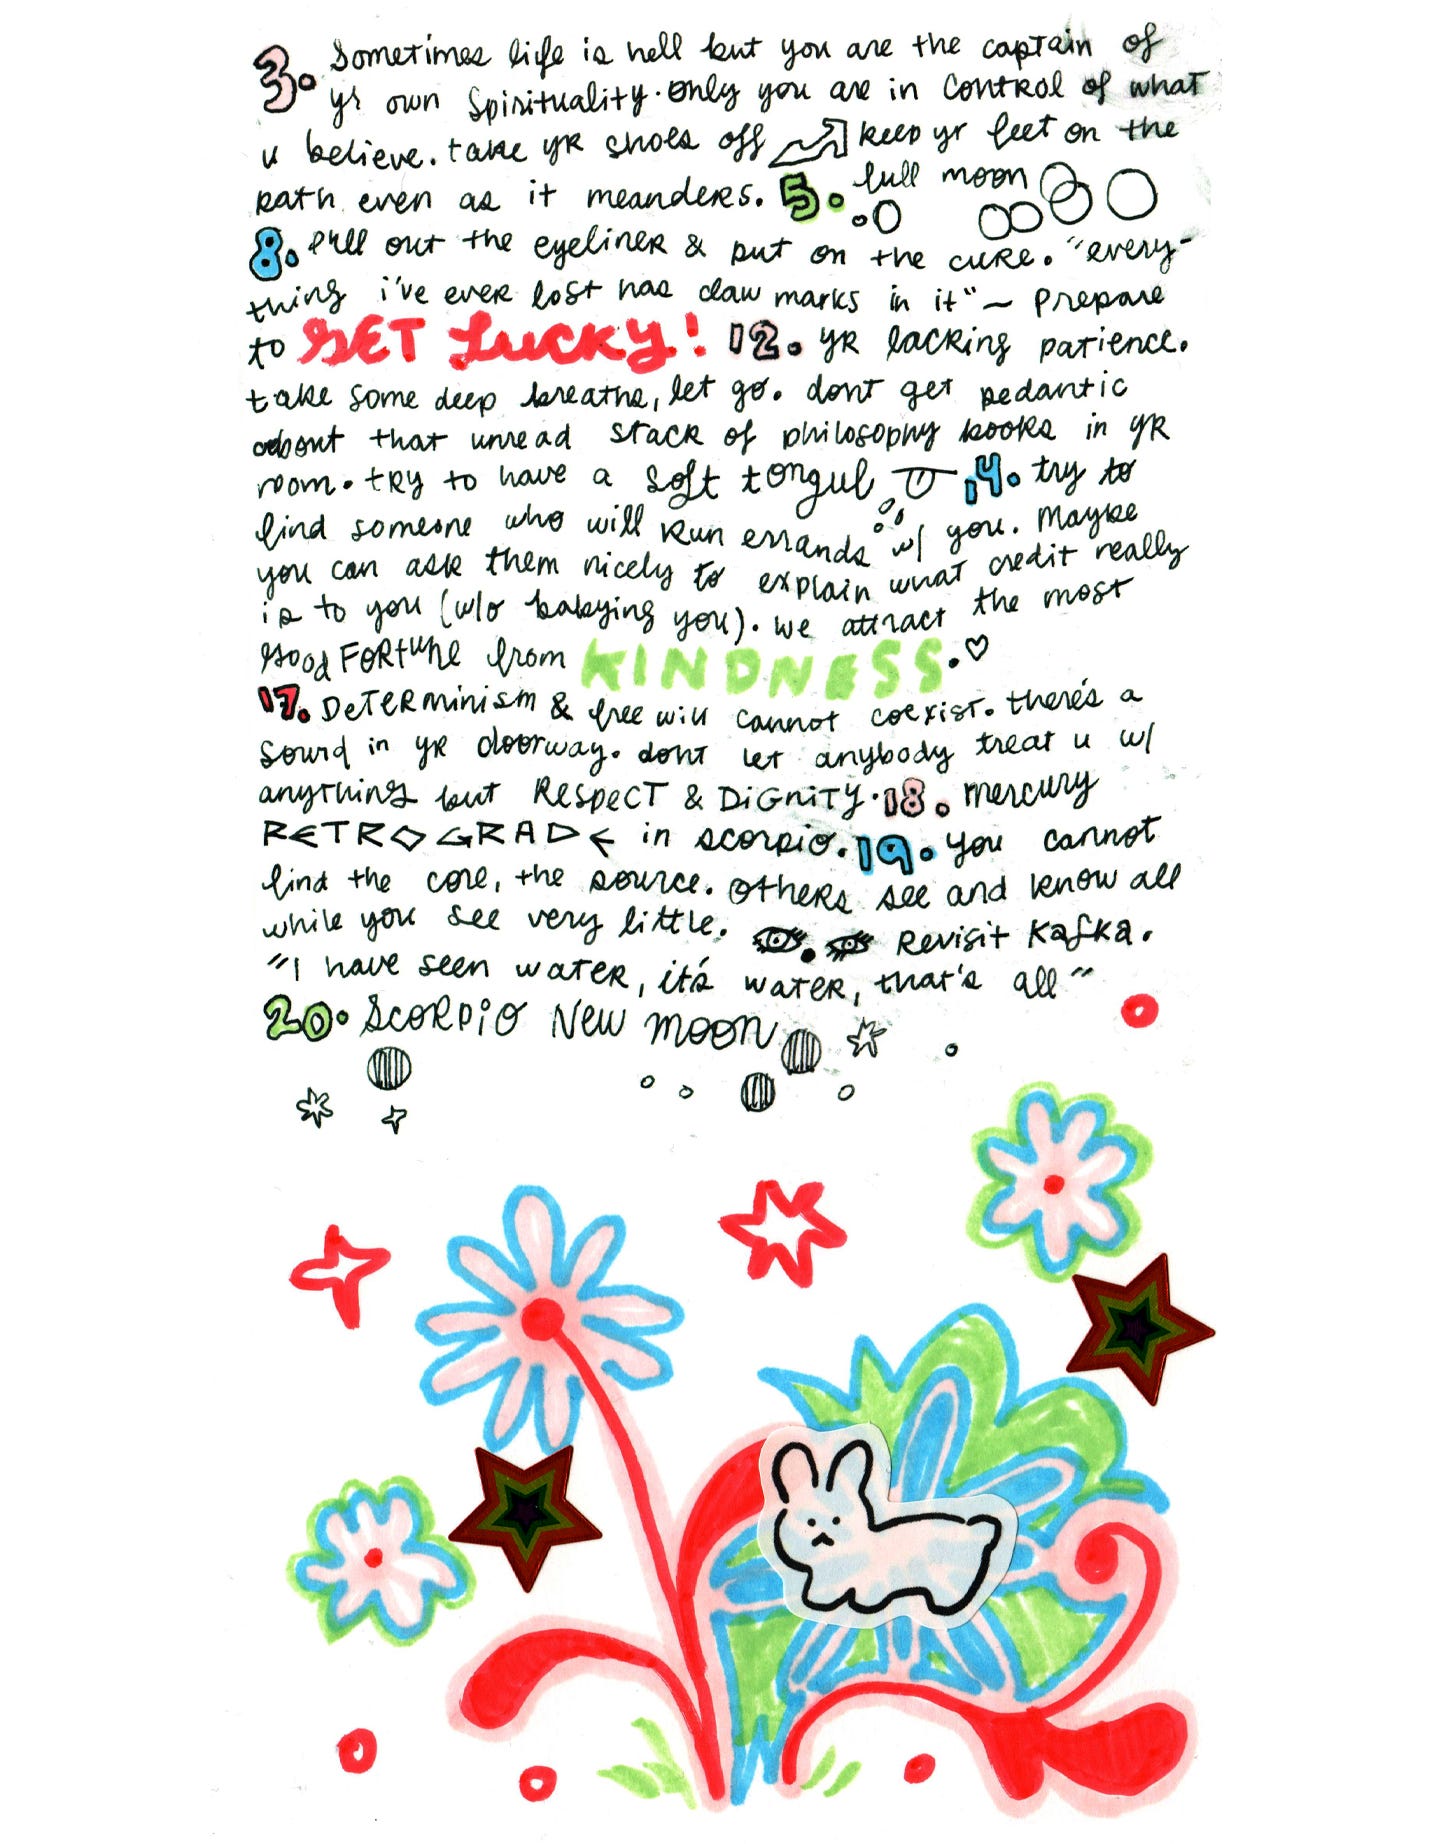 3. Sometimes life is hell but you are the captain of
yr own Spirituality. Only you are in CONTROL of what
u believe. take yr shoes off keep yr feet on the
path even as it meanders. 5. full moon
8. pull out the eyeliner & put on the cure. "every-
thing i've ever lost has claw marks in it" ~ prepare
to GET LUCKY! 12. yr lacking patience.
take some deep breaths, let go. dont get pedantic
about that unread stack of philosophy books in yr
room. try to have a soft tongue 14. try to
find someone who will run errands w/ you. Maybe
you can ask them nicely to explain what credit really
is to you (w/o babying you). we attract the most
good FORtune from KINDNESS.
17. Determinism & free will cannot coexist. there's a
sound in yr doorway. dont let anybody treat u w/
anything but RespecT & DiGniTY. 18. mercury
RETROGRADE in scorpio. 19. you cannot
find the core, the source. others see and know all
while you see very little. Revisit Kafka.
"I have seen water, it's water, that's all"
20. Scorpio New moon